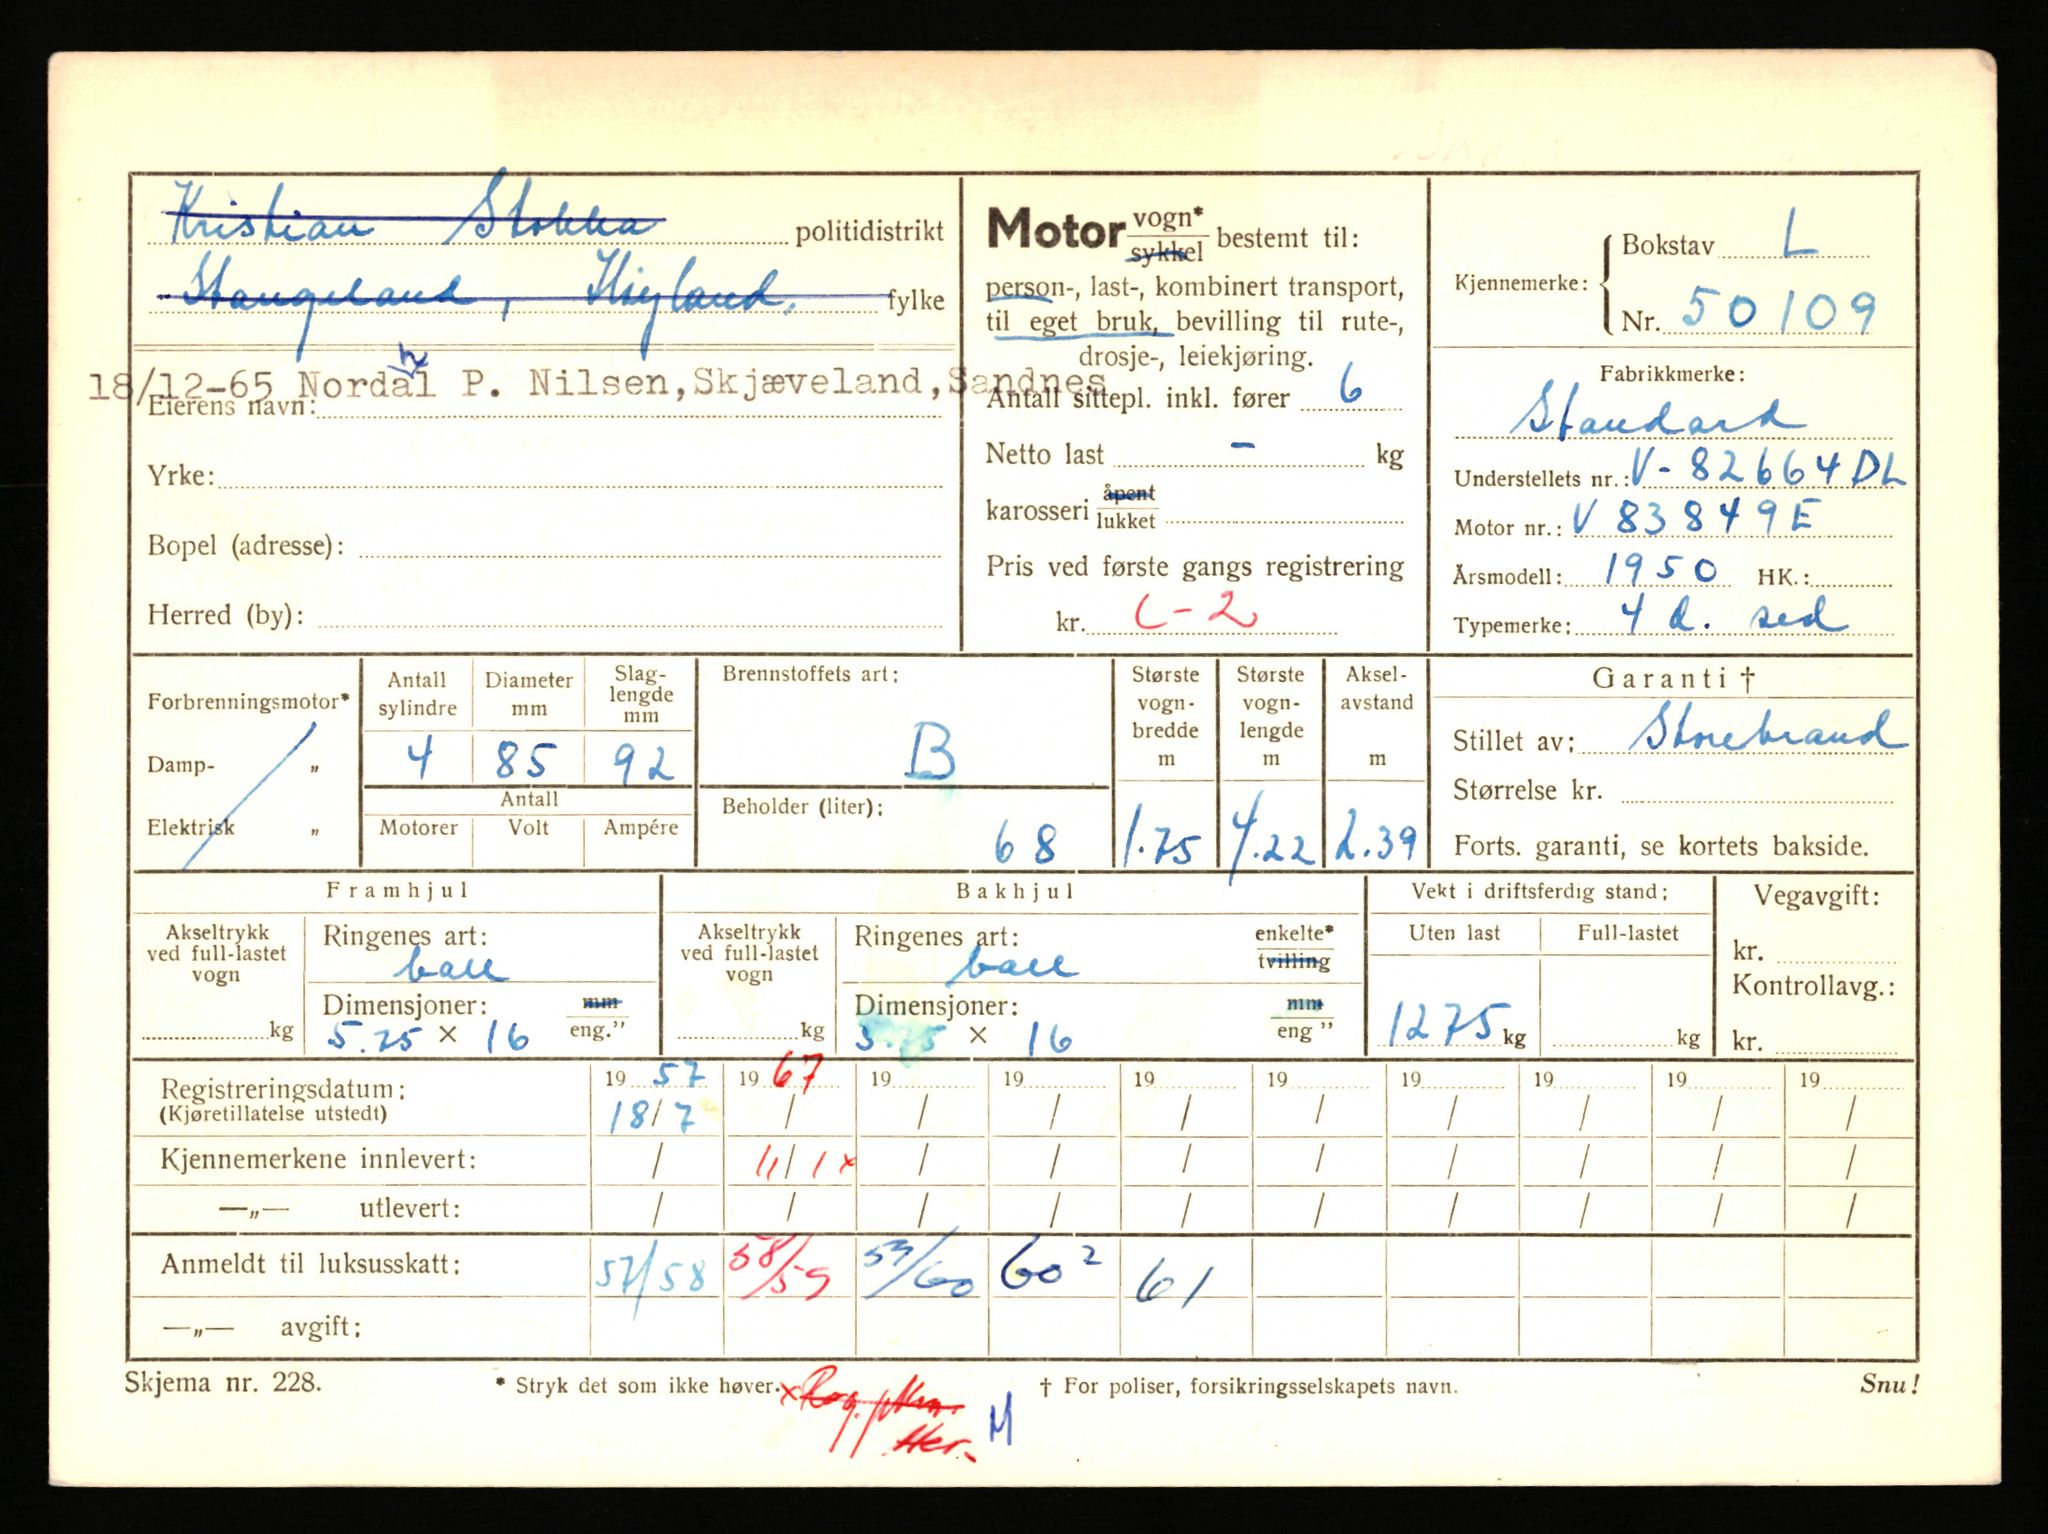 Kristian Stokka politidistrikt
Stangeland, Høyland, fylke
18/12-65 Nordal P. Nilsen, Skjæveland, Sandnes
Eierens navn:
Yrke:
Bopel (adresse):
Herred (by):
Motor vogn* sykkel bestemt til:
person-, last-, kombinert transport,
til eget bruk, bevilling til rute-,
drosje-, leiekjøring.
Antall sittepl. inkl. fører 6
Netto last - kg
karosseri åpent lukket
Pris ved første gangs registrering
kr. L-2
Kjennemerke: Bokstav L
Nr. 50109
Fabrikkmerke:
Standard
Understellets nr.: V-82664DL
Motor nr.: V83849E
Årsmodell: 1950 HK.:
Typemerke: 4 d. sed
Forbrenningsmotor*
Damp- „
Elektrisk „
Antall sylindre Diameter mm Slaglengde mm
4 85 92
Antall
Motorer Volt Ampére
Brennstoffets art:
B
Beholder (liter):
68
Største vognbredde m
1.75
Største vognlengde m
4.22
Akselavstand m
2.39
Garanti †
Stillet av: Storebrand
Størrelse kr.
Forts. garanti, se kortets bakside.
Framhjul
Akseltrykk ved full-lastet vogn
kg
Ringenes art:
ball
Dimensjoner: mm
5.75 × 16 eng.”
Bakhjul
Akseltrykk ved full-lastet vogn
kg
Ringenes art: enkelte* tvilling
ball
Dimensjoner: mm
5.75 × 16 eng ”
Vekt i driftsferdig stand:
Uten last Full-lastet
1275 kg kg
Vegavgift:
kr.
Kontrollavg.:
kr.
Registreringsdatum: 19 57 19 67 19 19 19 19 19 19 19 19
(Kjøretillatelse utstedt) 18/7 / / / / / / / / /
Kjennemerkene innlevert: / 11/1 x / / / / / / / /
—„— utlevert: / / / / / / / / / /
Anmeldt til luksusskatt: 57/58 58/59 59/60 60² 61
—„— avgift:
Skjema nr. 228. * Stryk det som ikke høver. † For poliser, forsikringsselskapets navn. Snu!
x Rog.
M